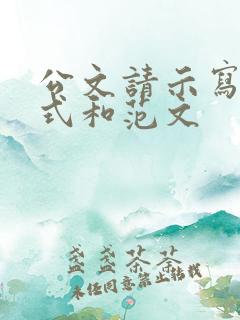 公文請示寫
式和范文
盞盞茶茶
未经同意禁止转载